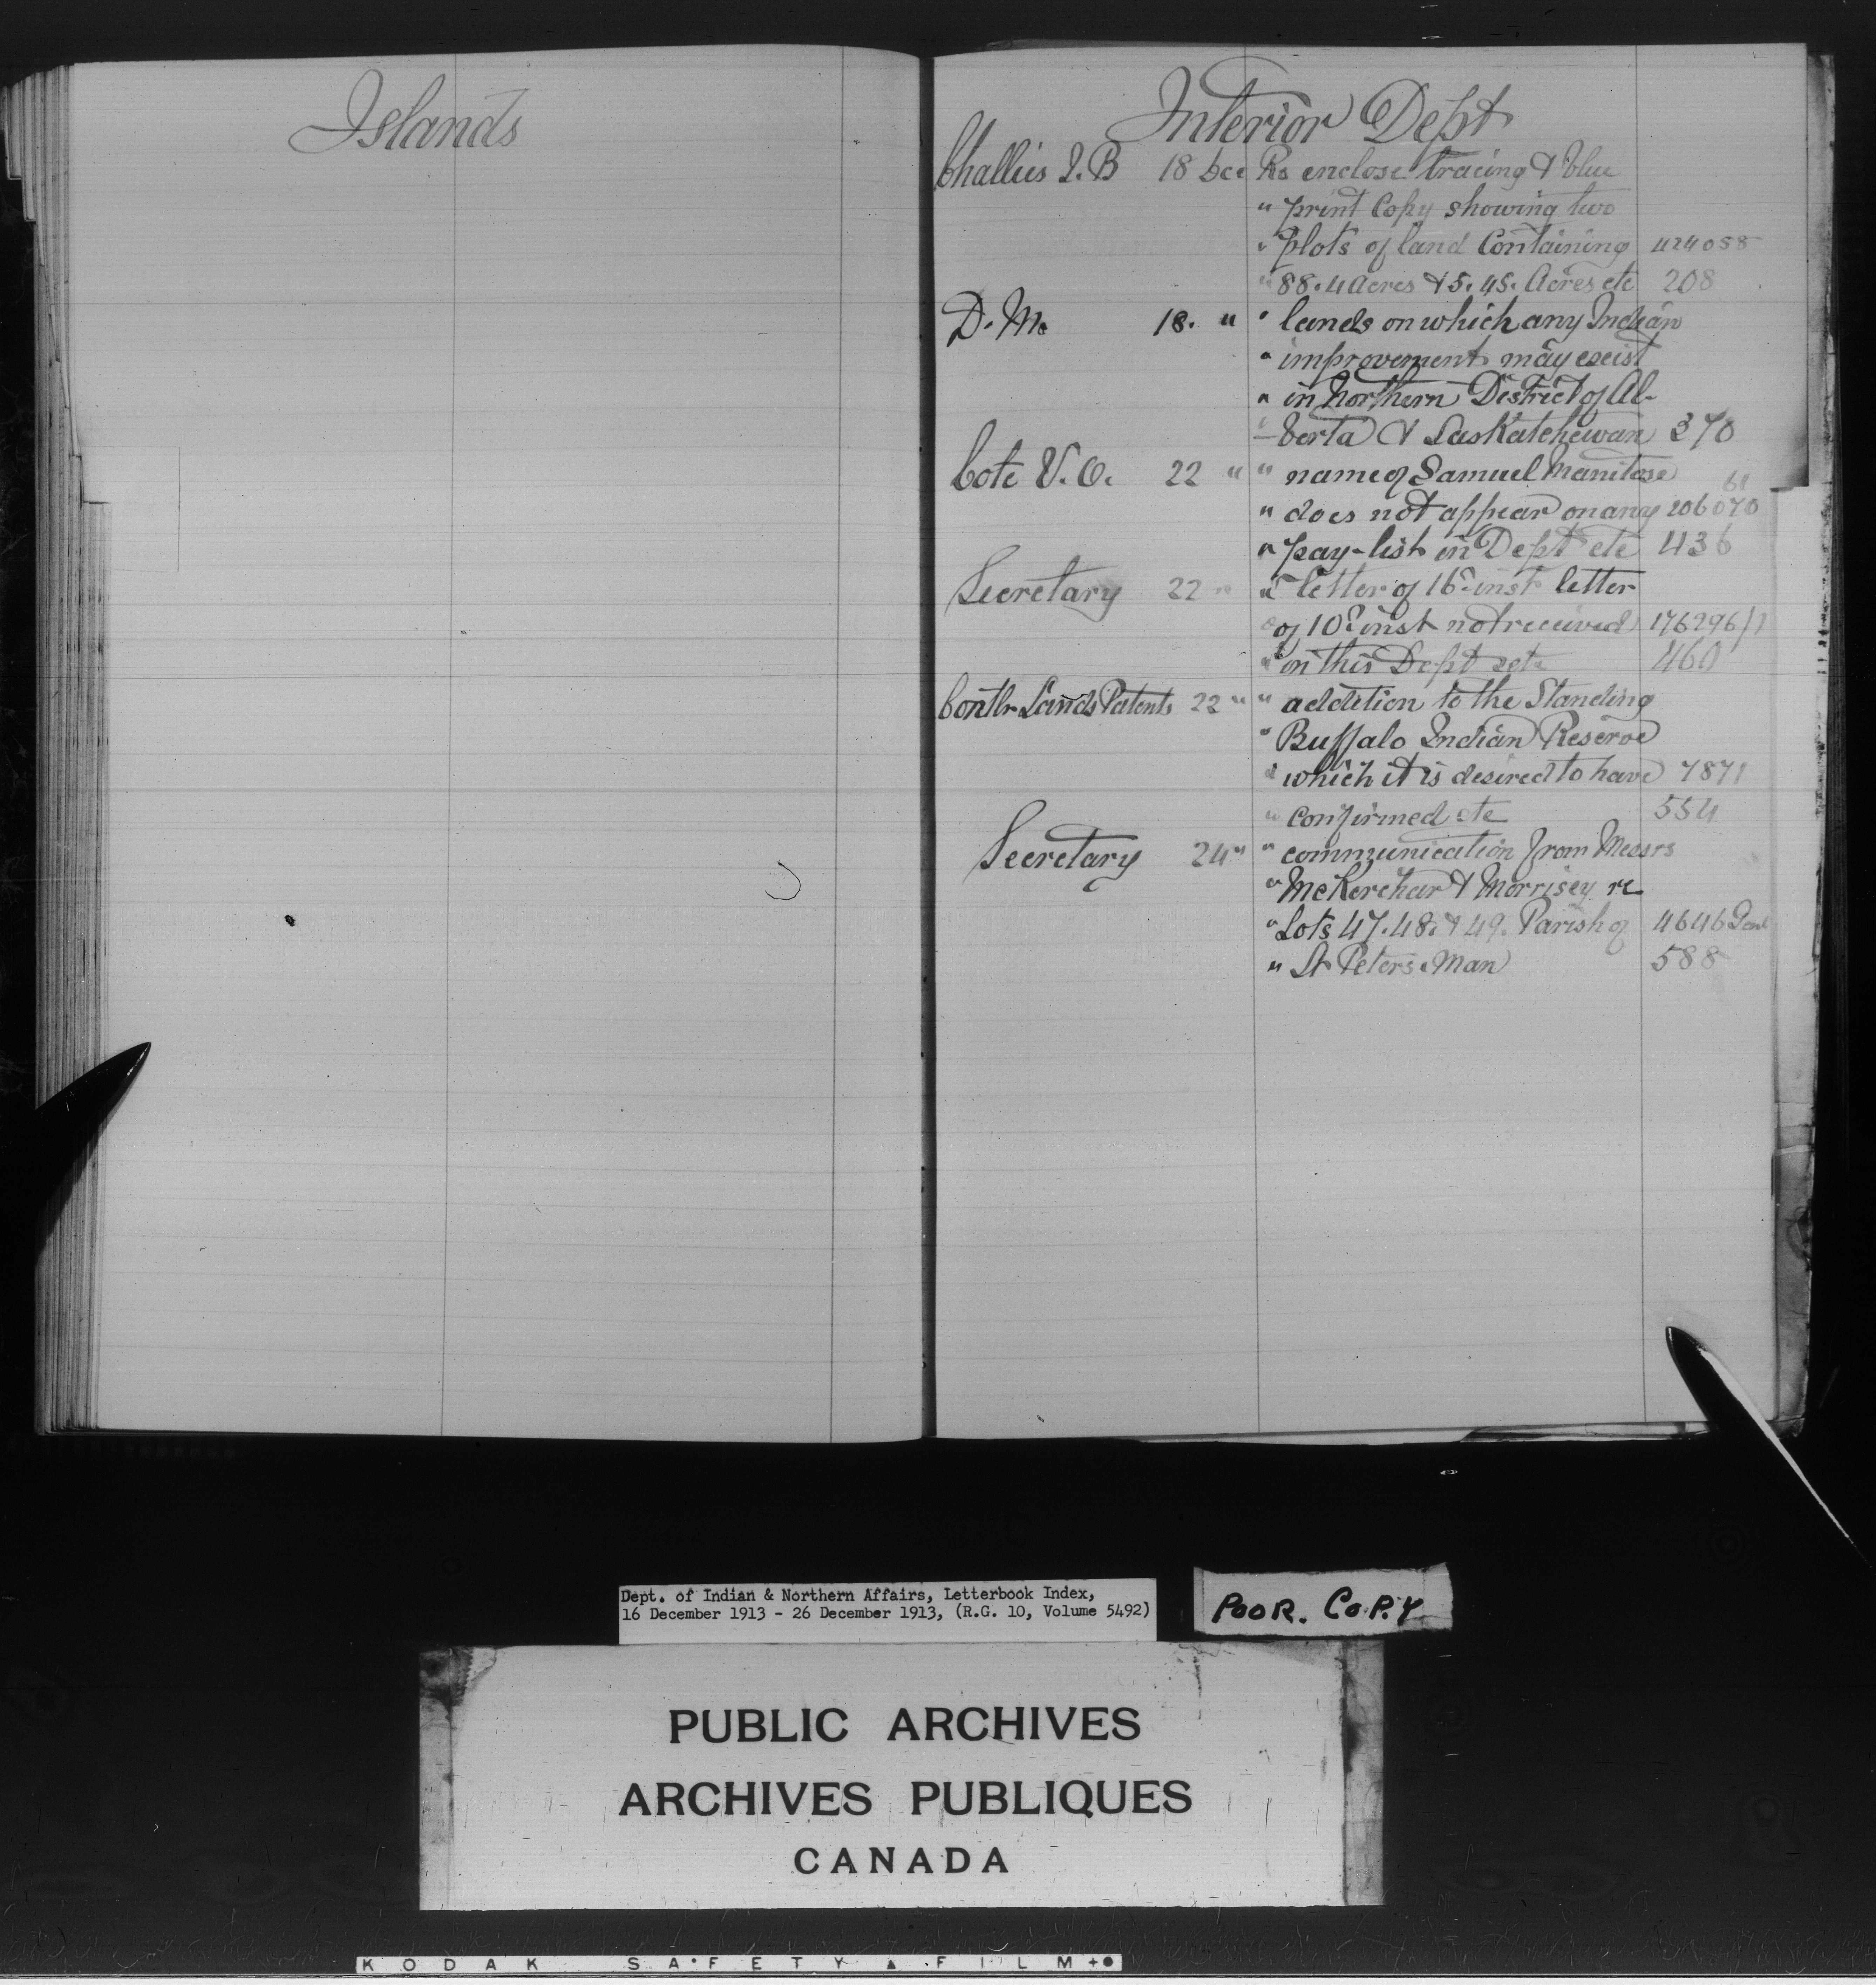 Islands
Interior Dept
Challies J. B 18 Dec Re enclose tracing & blue
" print Copy showing two
" plots of land Containing 424058
" 88.4 Acres & 5.45. Acres etc 208
D. M. 18. " " lands on which any Indian
" improvement may exist
" in Northern District of Al-
" -berta & Saskatchewan 370
Cote N. O. 22 " " name of Samuel Manitose 61
" does not appear on any 206070
" pay-list in Dept etc 436
Secretary 22 " " letter of 16th inst letter
" of 10th inst not received 176296/1
" in this Dept etc 460
Contlr Lands Patents 22 " " addition to the Standing
" Buffalo Indian Reserve
" which it is desired to have 7871
" confirmed etc 554
Secretary 24 " " communication from Messrs
" McKerchar & Morrisey re
" Lots 47. 48. & 49. Parish of 4646
" St Peters. Man 588
Dept. of Indian & Northern Affairs, Letterbook Index,
16 December 1913 - 26 December 1913, (R.G. 10, Volume 5492)
POOR. COPY
PUBLIC ARCHIVES
ARCHIVES PUBLIQUES
CANADA
KODAK SAFETY FILM